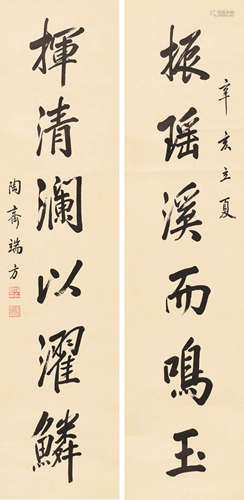 振瑶溪而鳴玉
辛亥立夏
揮清瀾以濯鱗
陶齋端方